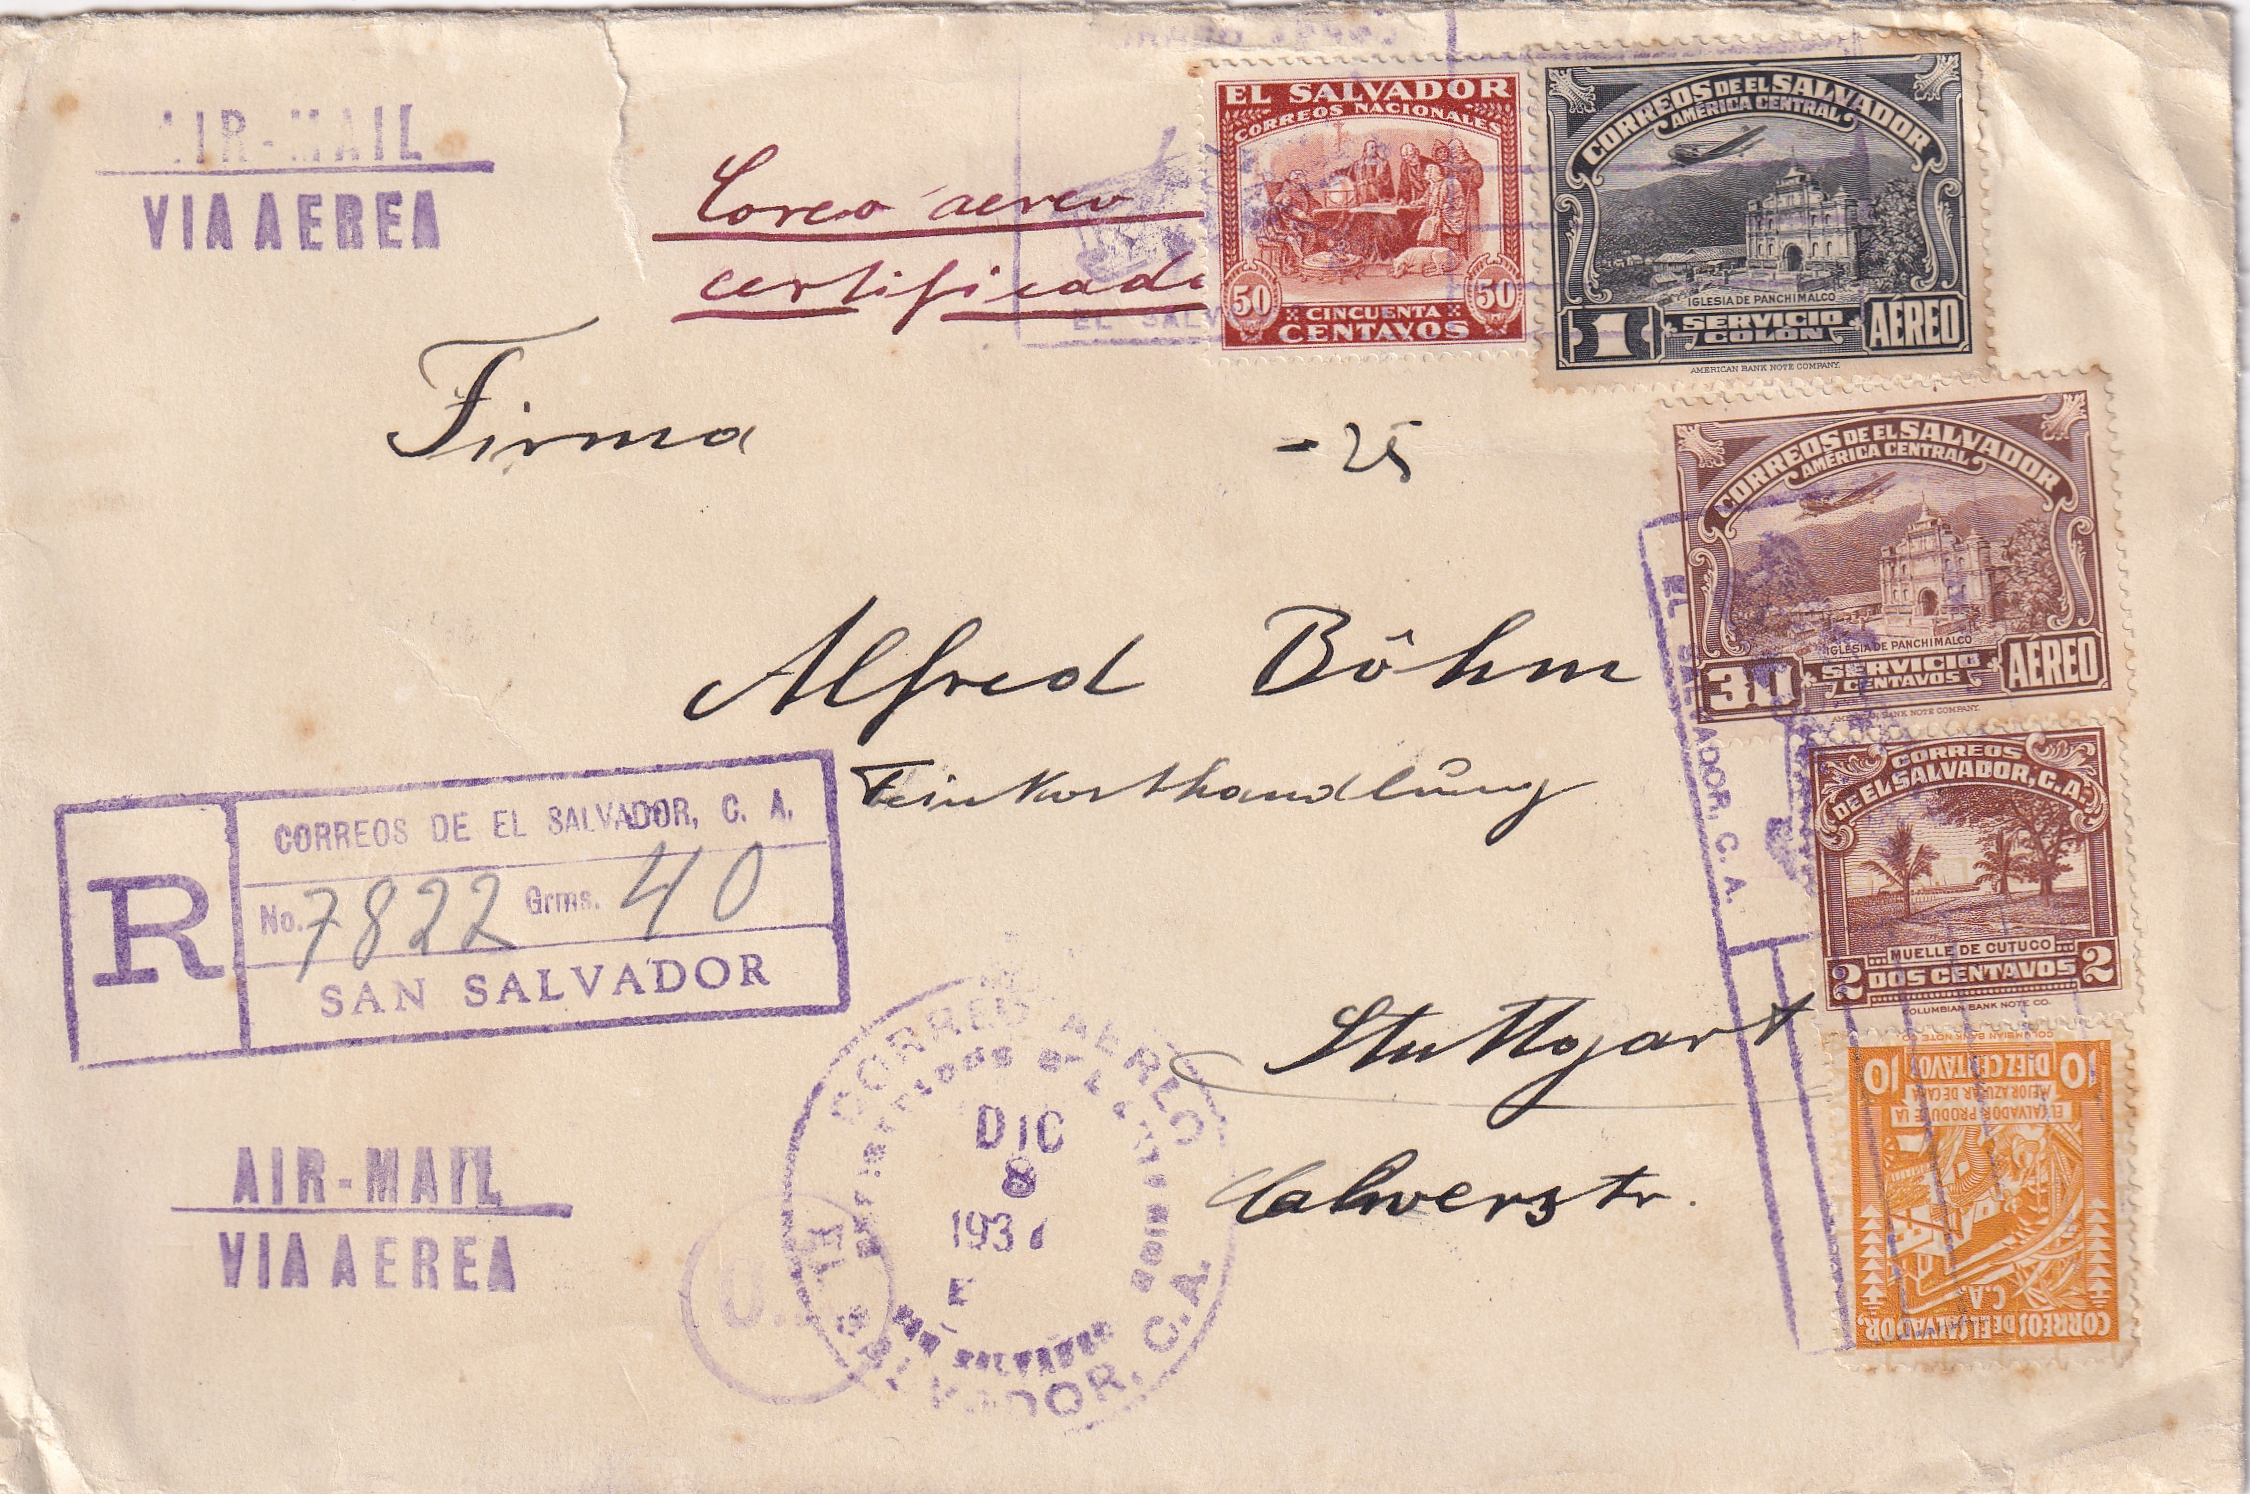 AIR-MAIL
VIA AEREA
Correo aereo
certificado
EL SALVADOR
CORREOS NACIONALES
50 50
CINCUENTA
CENTAVOS
CORREOS DE EL SALVADOR
AMÉRICA CENTRAL
IGLESIA DE PANCHIMALCO
1 SERVICIO AÉREO
COLÓN
AMERICAN BANK NOTE COMPANY.
Firma
-25
CORREOS DE EL SALVADOR
AMÉRICA CENTRAL
IGLESIA DE PANCHIMALCO
30 SERVICIO AÉREO
CENTAVOS
AMERICAN BANK NOTE COMPANY.
EL SALVADOR, C. A.
Alfred Böhm
Feinkosthandlung
CORREOS
DE EL SALVADOR, C.A.
MUELLE DE CUTUCO
2 DOS CENTAVOS 2
COLUMBIAN BANK NOTE CO.
R
CORREOS DE EL SALVADOR, C. A.
No. 7822 Grms. 40
SAN SALVADOR
Stuttgart
Calwerstr.
CORREOS DE EL SALVADOR
C.A.
EL SALVADOR PRODUCE LA
MEJOR AZUCAR DE CAÑA
10 DIEZ CENTAVOS 10
COLUMBIAN BANK NOTE CO.
AIR-MAIL
VIA AEREA
CORREO AEREO
DIC
8
1937
SAN SALVADOR
SALVADOR, C.A.